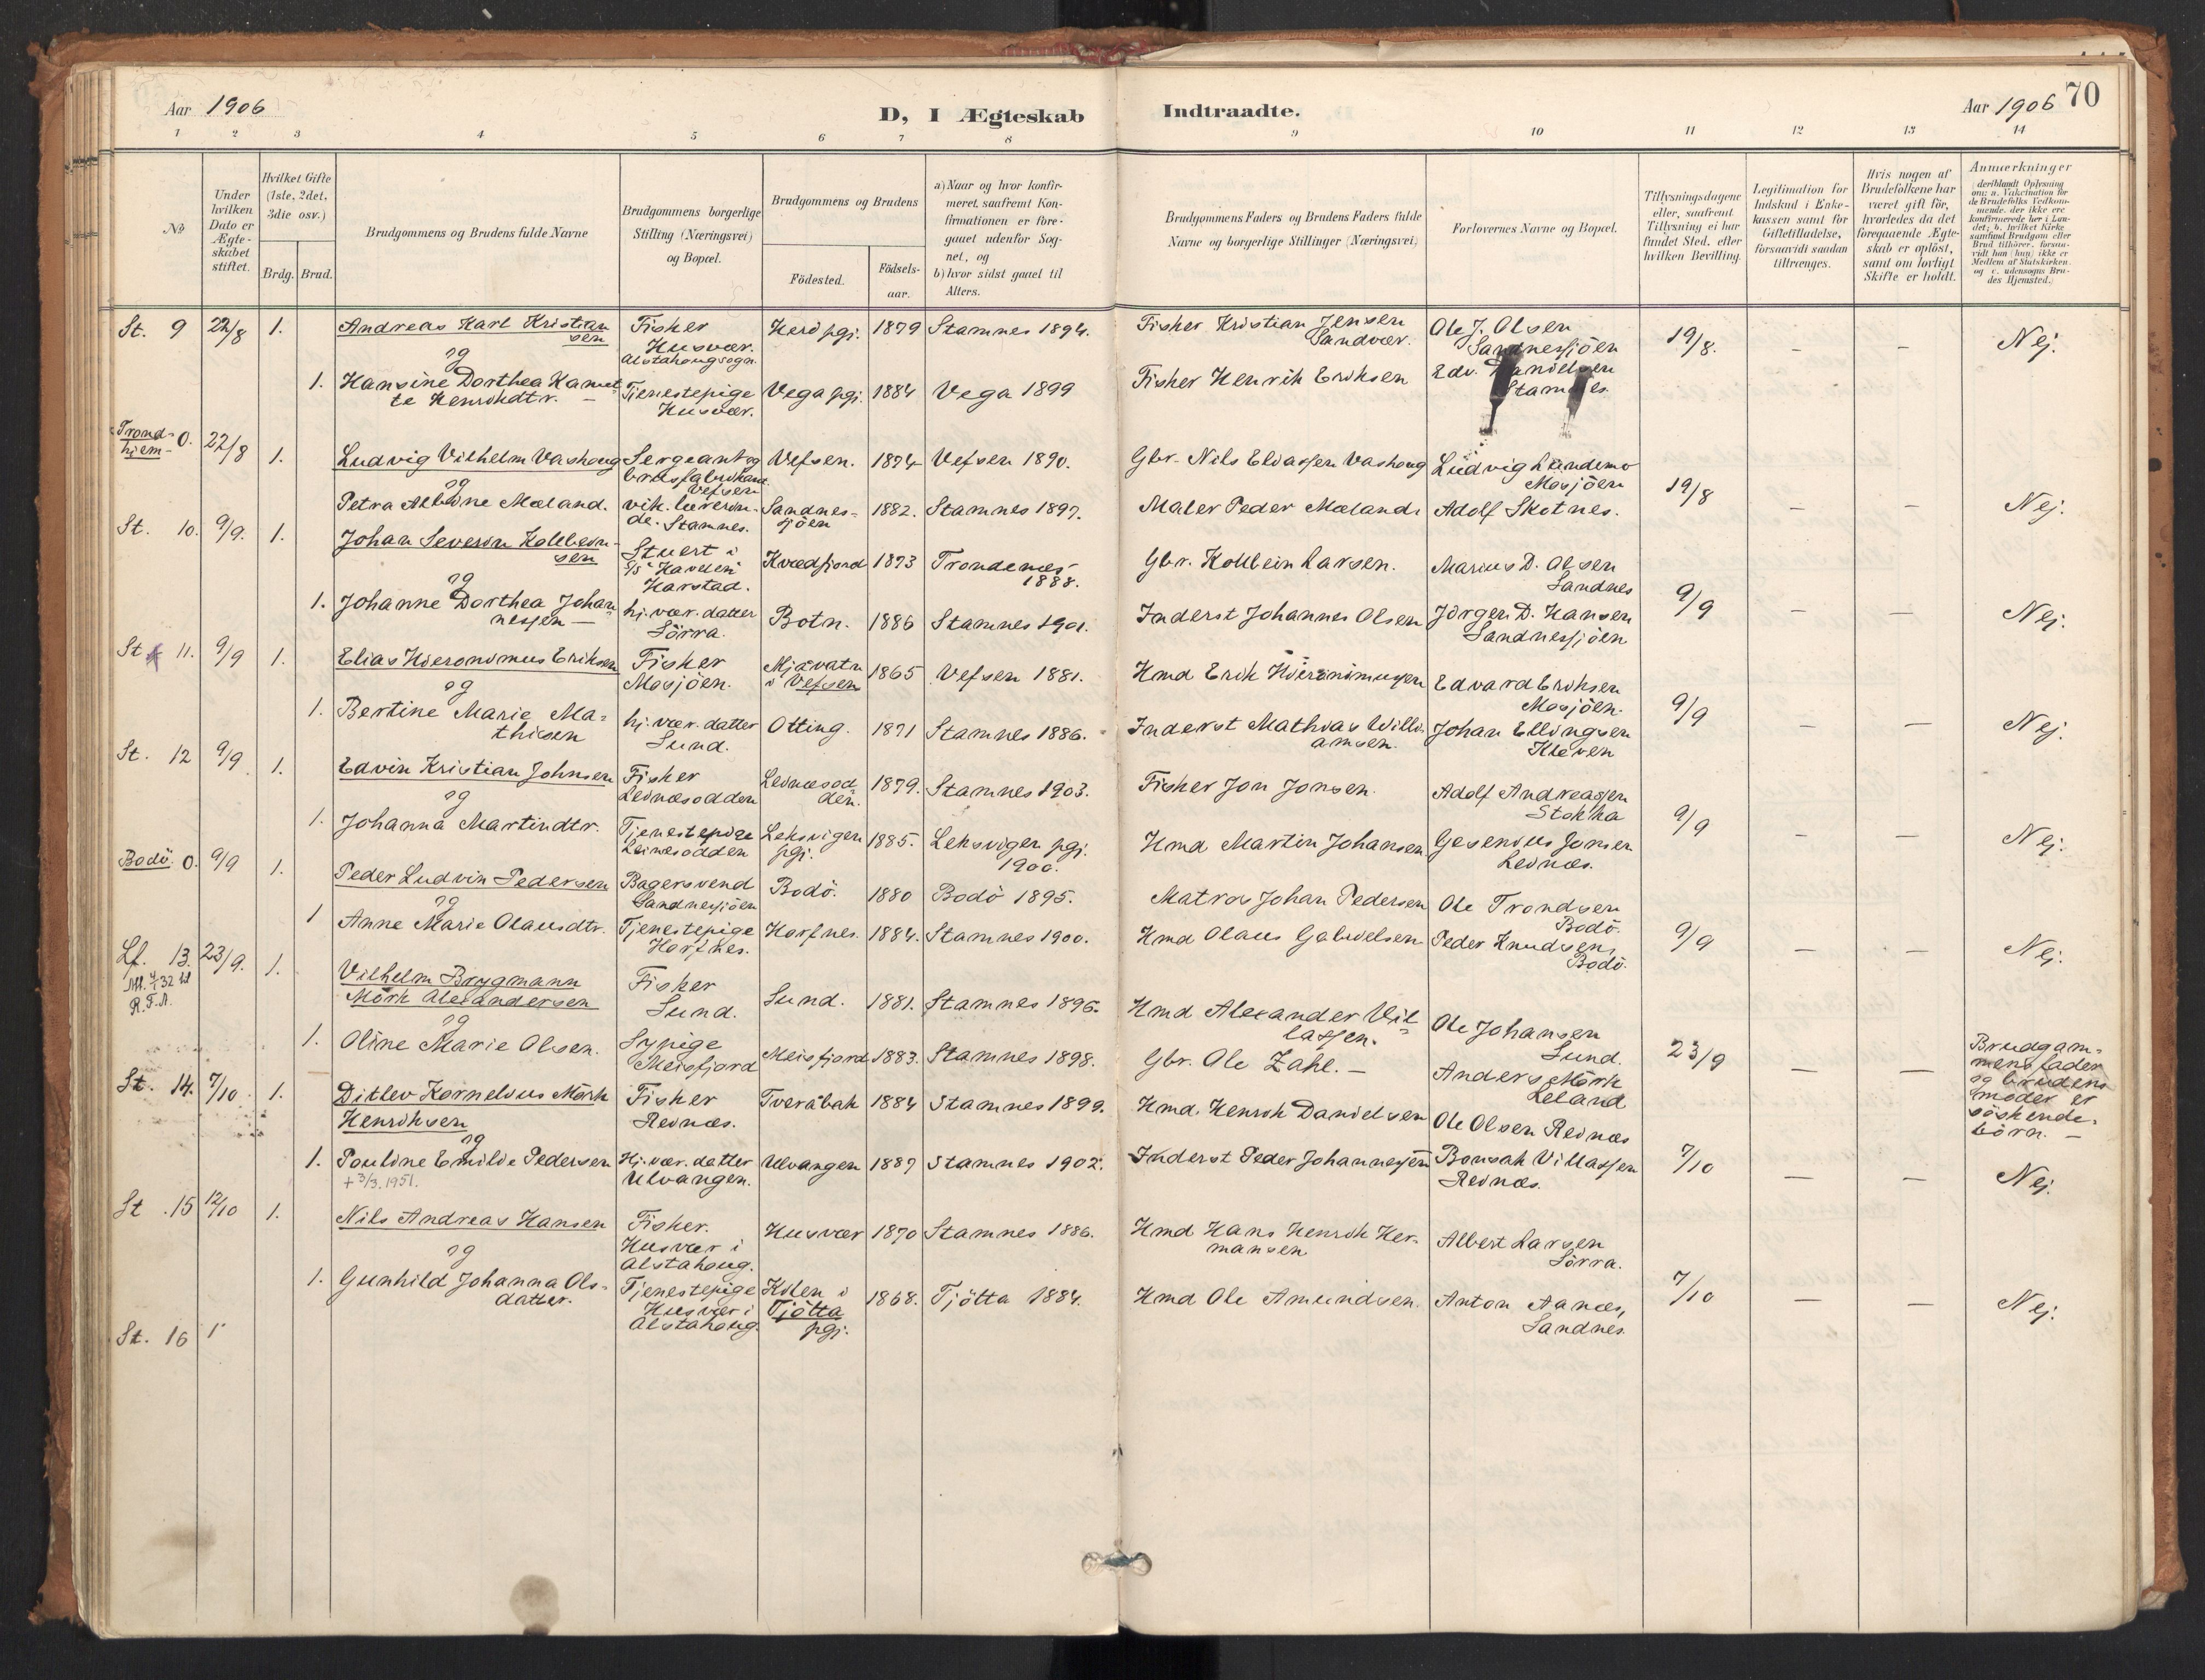 Aar 1906
D, I Ægteskab Indtraadte.
Aar 1906 70
1 2 3 4 5 6 7 8 9 10 11 12 13 14
No
Under hvilken Dato er Ægteskabet stiftet.
Hvilket Gifte (1ste, 2det, 3die osv.)
Brdg. Brud.
Brudgommens og Brudens fulde Navne
Brudgommens borgerlige Stilling (Næringsvei) og Bopæl.
Brudgommens og Brudens
Födested.
Födselsaar.
a) Naar og hvor konfirmeret, saafremt Konfirmationen er foregaaet udenfor Sognet, og
b) hvor sidst gaaet til Alters.
Brudgommens Faders og Brudens Faders fulde Navne og borgerlige Stillinger (Næringsvei)
Forlovernes Navne og Bopæl.
Tillysningsdagene eller, saafremt Tillysning ei har fundet Sted, efter hvilken Bevilling.
Legitimation for Indskud i Enkekassen samt for Giftetilladelse, forsaavidt saadan tiltrænges.
Hvis nogen af Brudefolkene har været gift för, hvorledes da det foregaaende Ægteskab er oplöst, samt om lovligt Skifte er holdt.
Anmærkninger
deriblandt Oplysning om: a. Vakcination for de Brudefolks Vedkommende, der ikke ere konfirmerede her i Landet; b. hvilket Kirkesamfund Brudgom eller Brud tilhörer, forsaavidt han (hun) ikke er Medlem af Statskirken, og c. udensogns Brudes Hjemsted.)
St. 9 22/8 1. Andreas Karl Kristiansen Fisker Husvær. Alstahougsogn. Herö pgj. 1879 Stamnes 1894. Fisker Kristian Jensen Sandvær. Ole J. Olsen Sandnessjöen 19/8. – – Nej.
og
1. Hansine Dorthea Henrikdtr. – Tjenestepige Husvær. Vega pgj. 1884 Vega 1899 Fisker Henrik Eriksen Edv. Danielsen Stamnes.
Trondhjem 0. 22/8 1. Ludvig Vilhelm Vashaug Sergeant og Vefsen Vefsen. 1874 Vefsen 1890. Gbr. Nils Eliassen Vashaug Ludvig Lündemo Mosjöen 19/8 – – Nej.
og
Petra Albine Mæland. vik. lærerinde. Stamnes. Sandnessjöen 1882. Stamnes 1897. Maler Peder Mæland Adolf Skotnes.
St. 10. 9/9. 1. Johan Severin Kolbeinsen Stuert i S/S "Havelen" Harstad. Kvædfjord 1873 Trondenes 1888. Gbr. Kolbein Larsen. Marius D. Olsen Sandnes 9/9 – – Nej.
og
1. Johanne Dorthea Johannessen – hj. vær. datter Sörra. Botn. 1886 Stamnes 1901. Inderst Johannes Olsen Jörgen D. Hansen Sandnessjöen
St. 11. 9/9 1. Elias Hieronimus Eriksen Fisker Mosjöen. Mjåvatn i Vefsen 1865 Vefsen 1881. Hmd Erik Hieronimussen Edvard Eriksen Mosjöen. 9/9 – – Nej.
og
1. Bertine Marie Mathisen hj. vær. datter Sund. Otting. 1871 Stamnes 1886. Inderst Mathias Williamsen. Johan Ellingsen Kleven
St. 12 9/9 1. Edvin Kristian Johnsen Fisker Leinæsodden Leinæsodden. 1879. Stamnes 1903. Fisker Jon Jonsen. Adolf Andreassen Stokka 9/9 – – Nej.
og
1. Johanna Martindtr. Tjenestepige Leinesodden Leksvigen pgj. 1885. Leksvigen pgj. 1900. Hmd Martin Johansen Gesenius Jonsen Leinæs.
Bodö. 0. 9/9 1. Peder Ludvin Pedersen Bagersvend Sandnessjöen Bodö. 1880 Bodö 1895. Matros Johan Pedersen Ole Trondsen Bodö. 9/9 – – Nej.
og
1 Anne Marie Olausdtr. Tjenestepige Horfnes. Horfnes. 1884. Stamnes 1900. Hmd Olaus Gabrielsen Peder Knudsen, Bodö.
Lf. 13. 23/9. 1. Vilhelm Brygmann Mörk Alexandersen Fisker Sund. Sund. 1881. Stamnes 1896. Hmd Alexander Villassen. Ole Johansen Sund. 23/9 – –
R.T.A.
og
1. Oline Marie Olsen. Sypige Meisfjord Meisfjord 1883. Stamnes 1898. Gbr. Ole Zahl. – Anders Mörk Leland
Brudgammens fader og brudens moder er söskendebörn. –
St. 14. 7/10 1. Ditlev Kornelius Mörk Henriksen Fisker Reinæs. Tveråbak 1884 Stamnes 1899. Hmd. Henrik Danielsen Ole Olsen Reinæs 7/10 – – Nej.
og
1. Pouline Emilie Pedersen Hj. vær. datter Ulvangen. Ulvangen 1887 Stamnes 1902. Inderst Peder Johannessen Bonsak Villassen Reinæs.
+ 3/3. 1951.
St. 15 12/10 1. Nils Andreas Hansen Fisker. Husvær i Alstahoug. Husvær 1870 Stamnes 1886. Hmd Hans Henrik Hermansen Albert Larsen Sörra. 7/10 – – Nej.
og
1. Gunhild Johanna Olsdatter. Tjenestepige Husvær i Alstahoug. Kilen i Tjötta pgj. 1868. Tjötta 1884. Hmd Ole Amundsen. Anton Aanæs, Sandnes.
St. 16 1